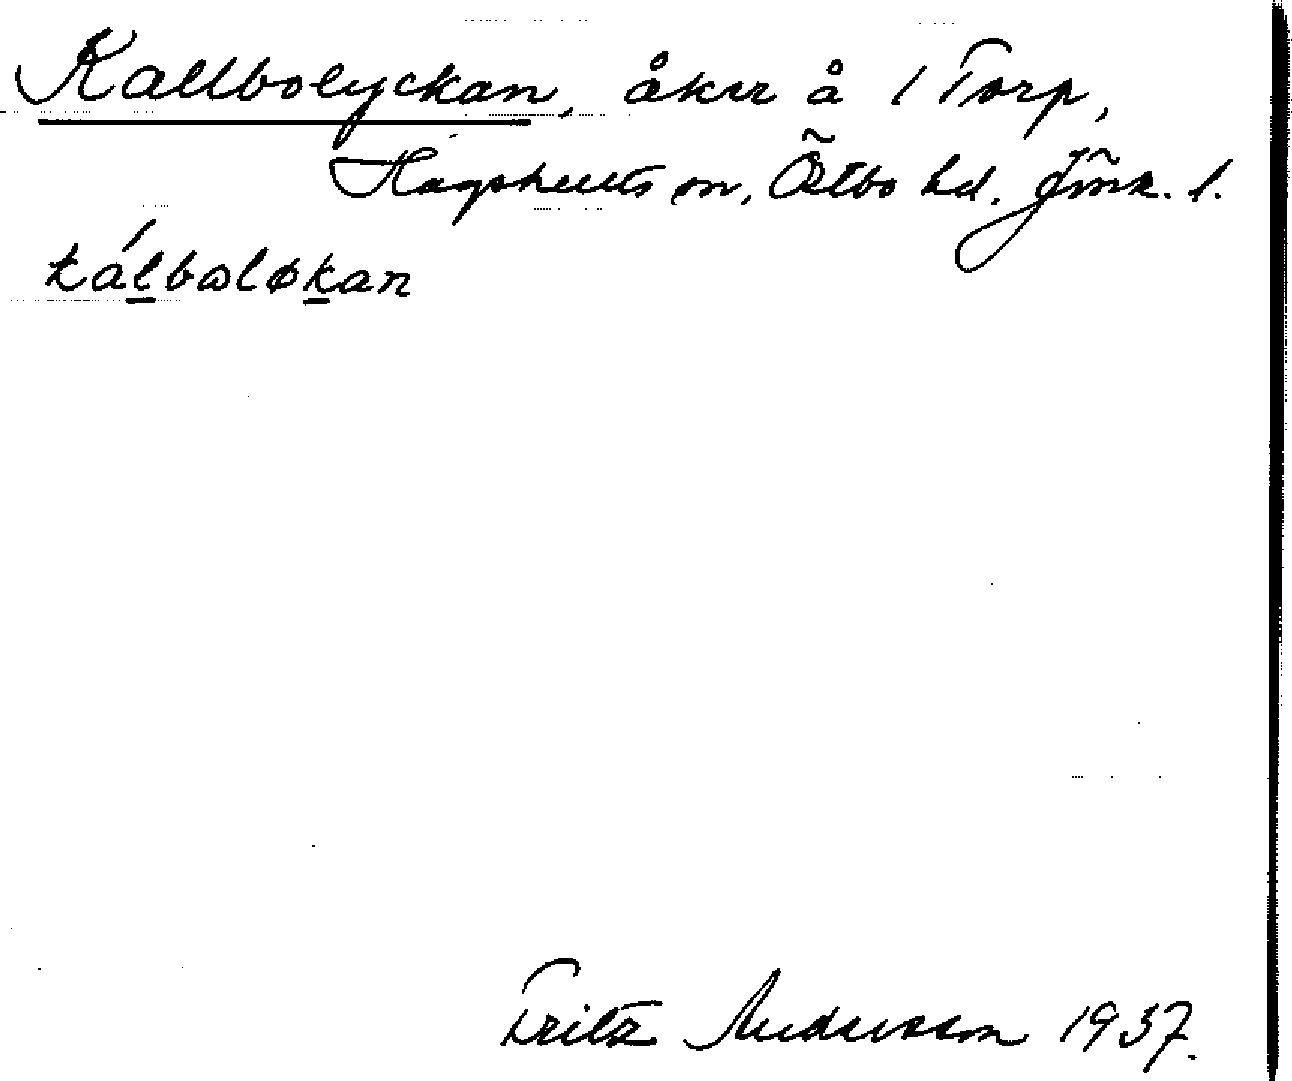 Kallbolyckan, åker å 1 Torp,
Hagshults sn, Östbo hd. Jönk. l.
kálbωløkan
Fritz Andersson 1937.